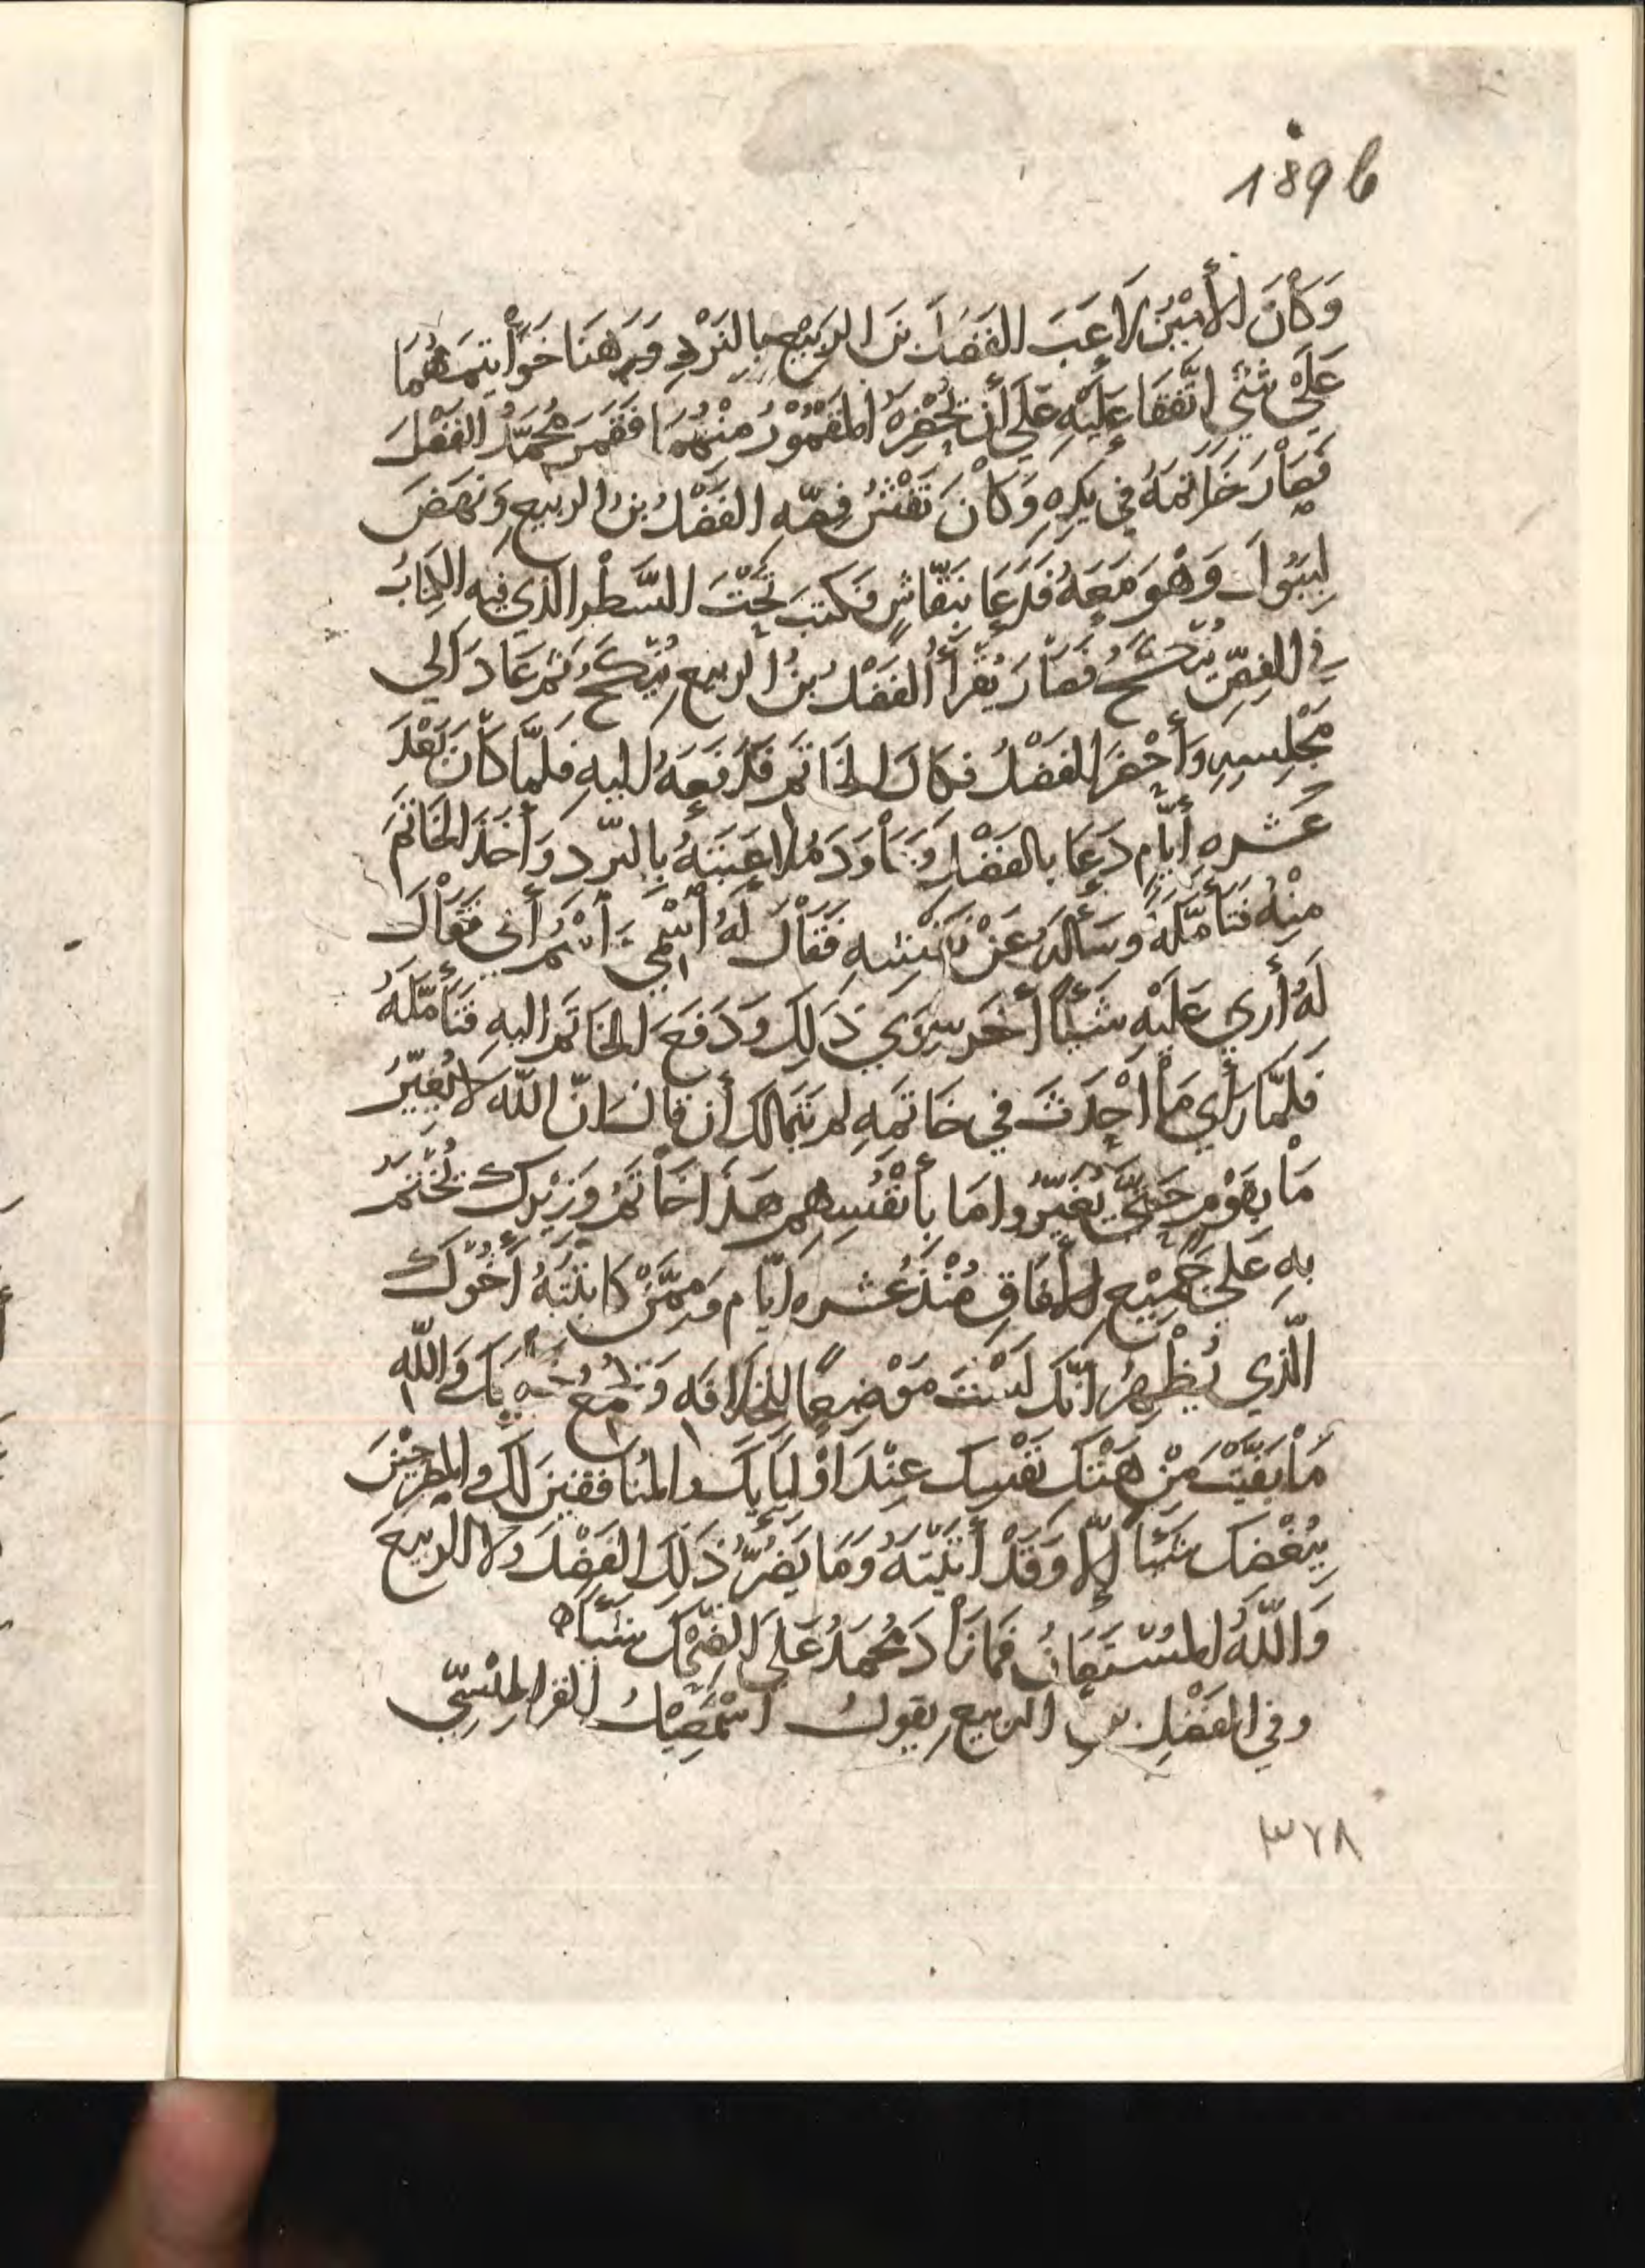 189b
وَكَانَ الأَمِيْنُ لَاعَبَ الفَضْلَ بنَ الرَبِيْعِ بِالنَرْدِ وَرَهَنَا خَوَاتِيمَهُمَا
عَلَى شَيْءٍ اتَّفَقَا عَلَيْهِ عَلَى أَن يُحْضِرَهُ المَقْمُوْرُ مِنْهُمَا فَقَمَرَ مُحَمَّدُ الفَضْلَ
فَصَارَ خَاتَمَهُ فِي يَدِهِ وَكَانَ نَقْشُ فِصِّهِ الفَضْلُ بنُ الربيعِ وَنَهَضَ
لِيَبُولَ وَهْوَ مَعَهُ فَدَعَا بنَقّاشٍ فَكَتَبَ تَحْتَ السَّطْرِ الذي فيهِ الكِتَابُ
في الفِصِّ يُنْكَحُ فَصَارَ يُقْرَأُ الفَضْلُ بنُ الربيع يُنْكَحُ ثم عَادَ الى
مَجْلِسِهِ وَأَحْضَرَ الفَضْلُ فكَاكَ الخَاتَم فَدَفَعَهُ اليهِ فلمّا كَانَ بَعْدَ
عَشره أيَّامٍ دَعَا بالفَضْلِ وَعَاوَدَ مُلَاعَبَتَهُ بالنرد وَأَخَذَ الخَاتَمَ
مِنْهُ فَتَأَمَّلَهُ وسَأَلَهُ عَنْ نَقْشِهِ فَقَالَ لَهُ اسْمِي وَاسْمُ أَبِي فقَالَ
لَهُ أَرى عَلَيْهِ شَيْئًا أخَر سِوَى ذَلِكَ وَدَفَعَ الخاتَم اليهِ فَتَأَمَّلَهُ
فَلَمَّا رَأَى مَا أُحْدِثَ في خَاتَمِهِ لم يَتَمالك أن قال انّ اللّه لَا يُغَيِّرُ
مَا بِقَوْمٍ حَتَّى يُغَيِّرُوا مَا بِأَنْفُسِهِم هَذَا خَاتَمُ وَزِيْرِك يُخْتَمُ
بِهِ عَلَى جَمِيْعِ الأفَاقِ مُنْذُ عَشره أيّام وَمِمَّنْ كَاتَبْتَهُ أَخُوْكَ
الّذي يُظْهِرُ انّكَ لَسْتَ مَوْضِعًا لِلخِلَافَه وَ بِكَ وَاللّهِ
مَا بَقَّيْتَ مِنْ هَتْكِ نَفْسِكَ عِنْدَ اوْلِيَايِكَ والمُنَافقينَ لَكَ والمصرحِيْنَ
بِبُغْضِكَ شَيْئًا إلّا وَقَدْ أَتَيْتَهُ وَمَا يَضُرُّ ذَلِكَ الفَضْلَ ولا الربيعَ
وَاللّهُ المُسْتَعَانُ فَمَا زَادَ مُحَمَدُ عَلَى الضَّحِكِ شَيْئًا ه
وفي الفَضْلِ بنِ الربيعِ يقولُ اسْمَعِيْلُ القراطِيْسِيّ
٣٧٨